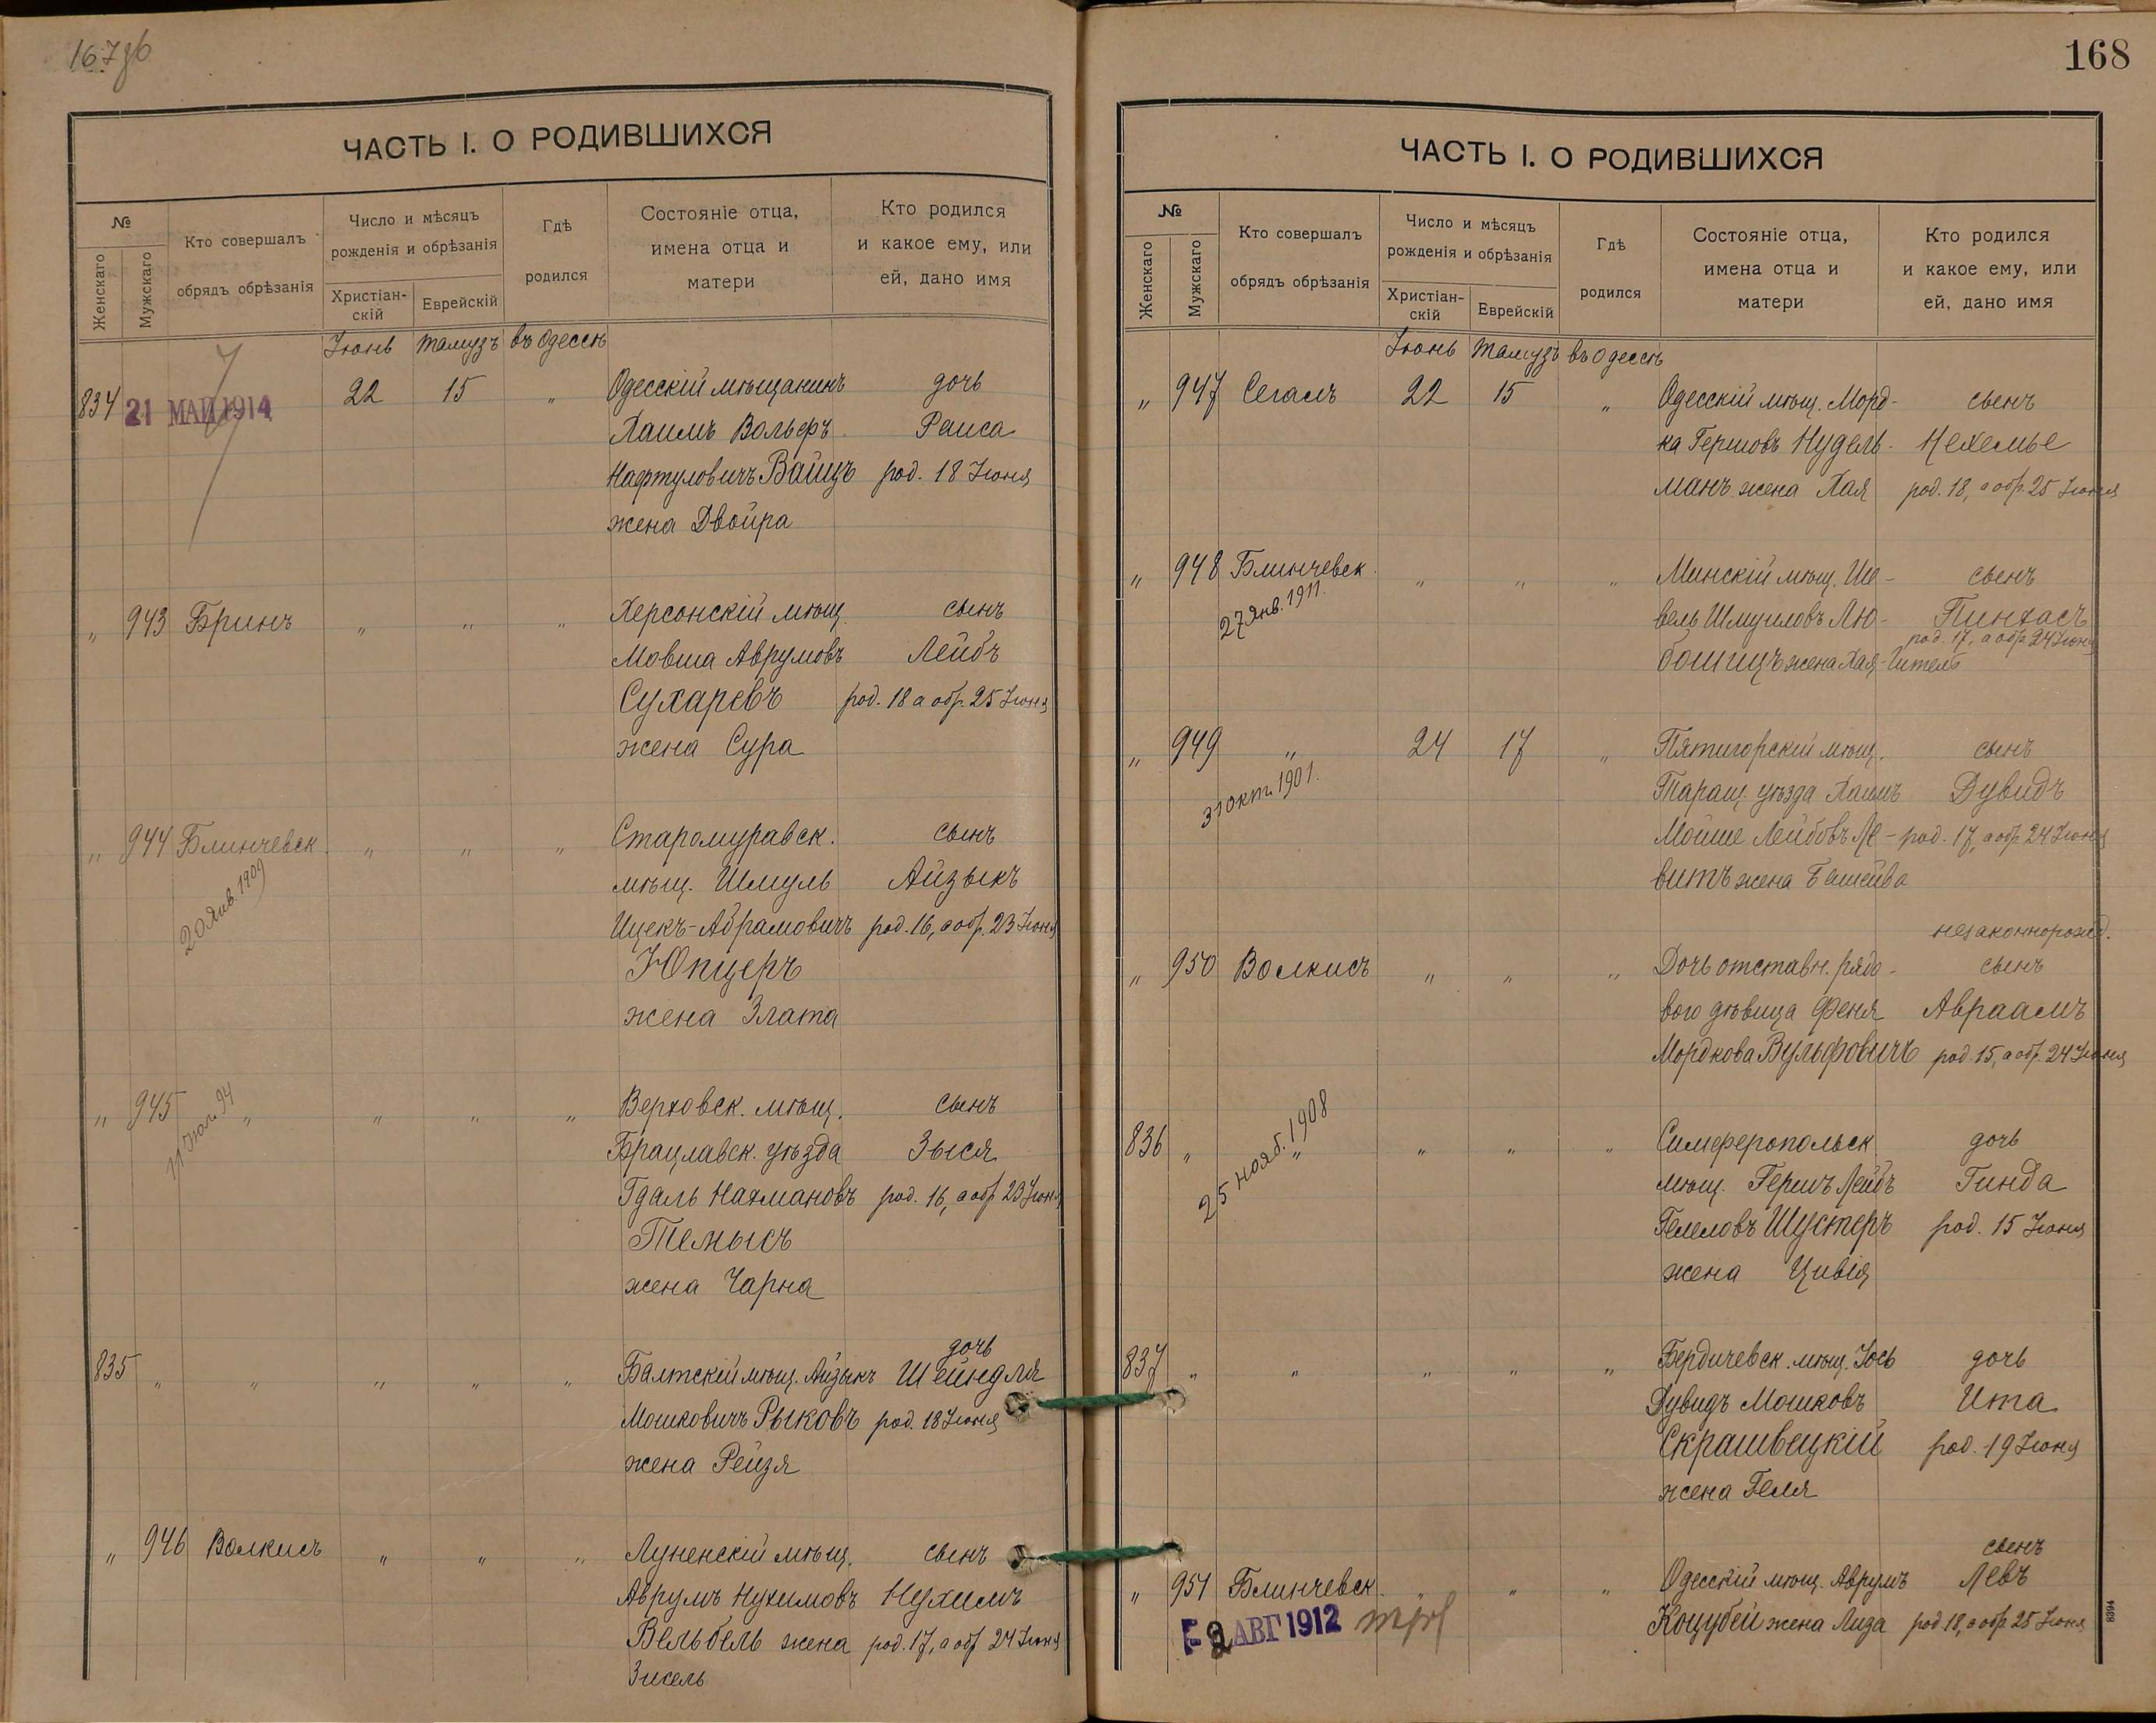 167об
ЧАСТЬ I. О РОДИВШИХСЯ
№
Женскаго
Мужскаго
Кто совершалъ
обрядъ обрѣзанія
Число и мѣсяцъ
рожденія и обрѣзанія
Христіан-
скій
Еврейскій
Гдѣ
родился
Состояніе отца,
имена отца и
матери
Кто родился
и какое ему, или
ей, дано имя
Іюнь Тамузъ въ Одессѣ
834 21 МАЙ 1914 22 15 „ Одесскій мѣщанинъ дочь
Хаимъ Вольфъ Раиса
Нафтуловичъ Вайцъ род. 18 Іюня
жена Двойра
„ 943 Бринъ „ „ „ Херсонскій мѣщ. сынъ
Мовша Аврумовъ Лейбъ
Сухаревъ род. 18 а обр. 25 Іюня
жена Сура
„ 944 Блинчевск. „ „ „ Старомуравск. сынъ
20 Янв. 1909
мѣщ. Шмуль Айзыкъ
Ицекъ-Абрамовичъ род. 16, а обр. 23 Іюня
Юпцеръ
жена Злата
„ 945 „ „ „ „ Верховск. мѣщ. сынъ
Брацлавск. уѣзда Зыся
Гдаль Нахмановъ род. 16, а обр. 23 Іюня
жена Чарна
835 „ „ „ „ „ Балтскій мѣщ. Айзыкъ дочь Шейндля
Мошковичъ Рыковъ род. 18 Іюня
жена Рейзя
„ 946 Волкисъ „ „ „ Луненскій мѣщ. сынъ
Аврумъ Нухимовъ Нухимъ
Вельбель жена род. 17, а обр. 24 Іюня
Зисель
168
ЧАСТЬ I. О РОДИВШИХСЯ
№
Женскаго
Мужскаго
Кто совершалъ
обрядъ обрѣзанія
Число и мѣсяцъ
рожденія и обрѣзанія
Христіан-
скій
Еврейскій
Гдѣ
родился
Состояніе отца,
имена отца и
матери
Кто родился
и какое ему, или
ей, дано имя
Іюнь Тамузъ въ Одессѣ
„ 947 Сегалъ 22 15 „ Одесскій мѣщ. Морд- сынъ
ка Гершовъ Нудель- Нехемье
манъ жена Хая род. 18, а обр. 25 Іюня
„ 948 Блинчевск. „ „ „ Минскій мѣщ. Ше- сынъ
27 Янв. 1911.
вель Шмуиловъ Лю- Пинхасъ
род. 17, а обр. 24 Іюня
бошицъ жена Хая-Гитель
„ 949 „ 24 17 „ Пятигорскій мѣщ. сынъ
31 окт. 1901.
Таращ. уѣзда Хаимъ Дувидъ
Мойше Лейбовъ Ле- род. 17, а обр. 24 Іюня
витъ жена Башейва
незаконнорожд.
„ 950 Волкисъ „ „ „ Дочь отставн. рядо- сынъ
вого дѣвица Феня Авраамъ
Мордкова Вульфовичъ род. 15, а обр. 24 Іюня
836 „ „ „ „ „ Симферопольск. дочь
25 нояб. 1908
мѣщ. Гершъ Лейбъ Гинда
Гемеловъ Шустеръ род. 15 Іюня
жена Цивія
837 „ „ „ „ „ Бердичевск. мѣщ. Іось дочь
Дувидъ Мошковъ Ита
Скрашвецкій род. 19 Іюня
жена Геля
сынъ
„ 951 Блинчевск. „ „ „ Одесскій мѣщ. Аврумъ Левъ
2 АВГ 1912
Коцубей жена Лиза род. 18, а обр. 25 Іюня
8394